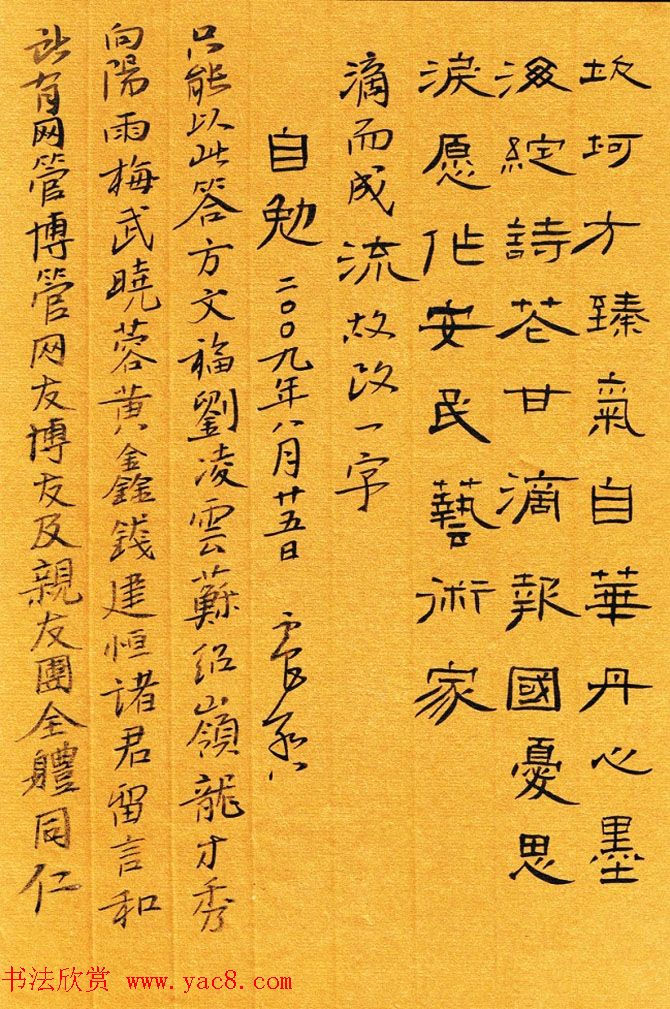 坎坷方臻氣自華丹心墨
海綻詩花甘滴報國憂思
淚愿作安民藝術家
滴而成流故改一字
自勉 二〇〇九年八月廿五日
只能以此答方文福劉凌雲蘇紹嶺龍才秀
向陽雨梅武曉蓉黃鑫錢建恒諸君留言和
所有网管博管网友博友及親友團全體同仁
书法欣赏 www.yac8.com